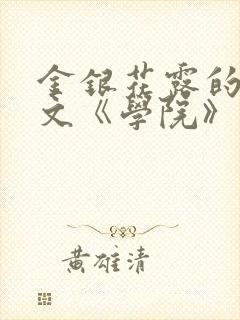 金银花露的
文《學院》
黄雄清